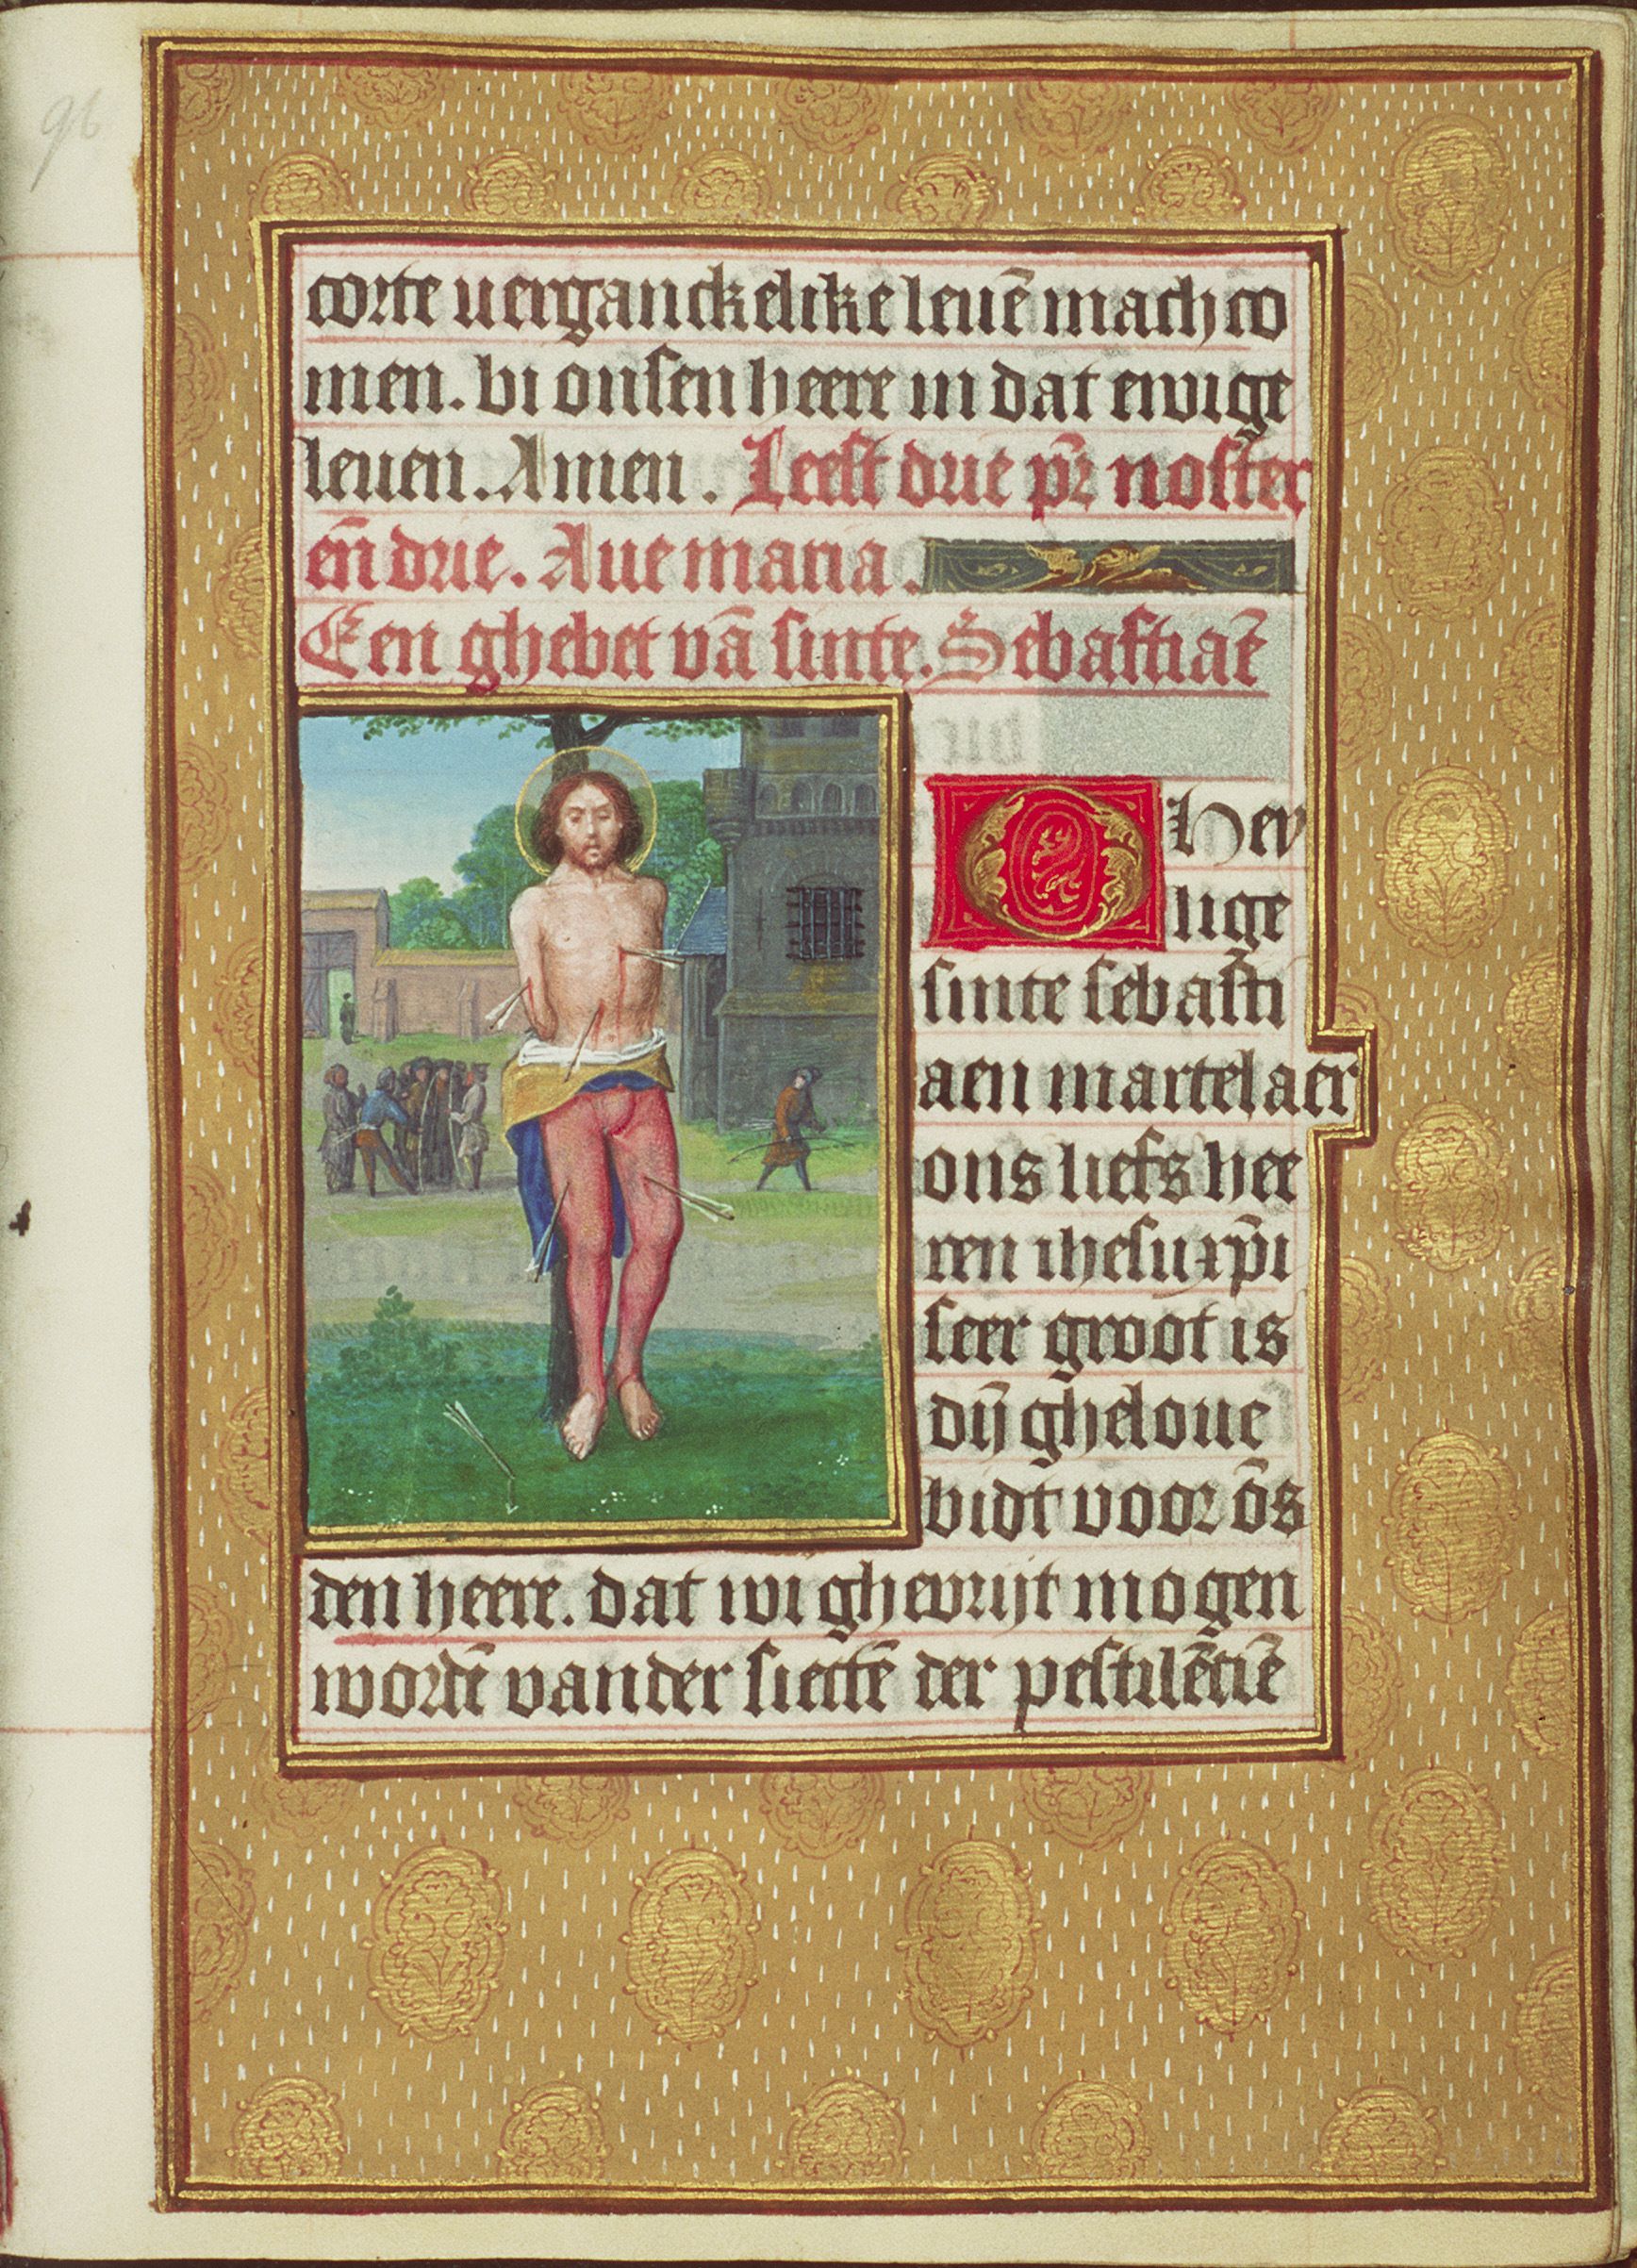 96
corte verganckelike leuē mach co
men. bi onsen heere in dat ewige
leuen. Amen. Leest drie pr̄ noster
en̄ drie. Aue maria.
Een ghebet vā sinte. Sebastiaē
O hey
lige
sinte sebasti
aen martelaer
ons liefs hee
ren ihesu xp̄i
seer groot is
dij̄ gheloue
bidt voor ōs
den heere. dat wi ghevrijt mogen
wordē vander siectē der pestilētiē